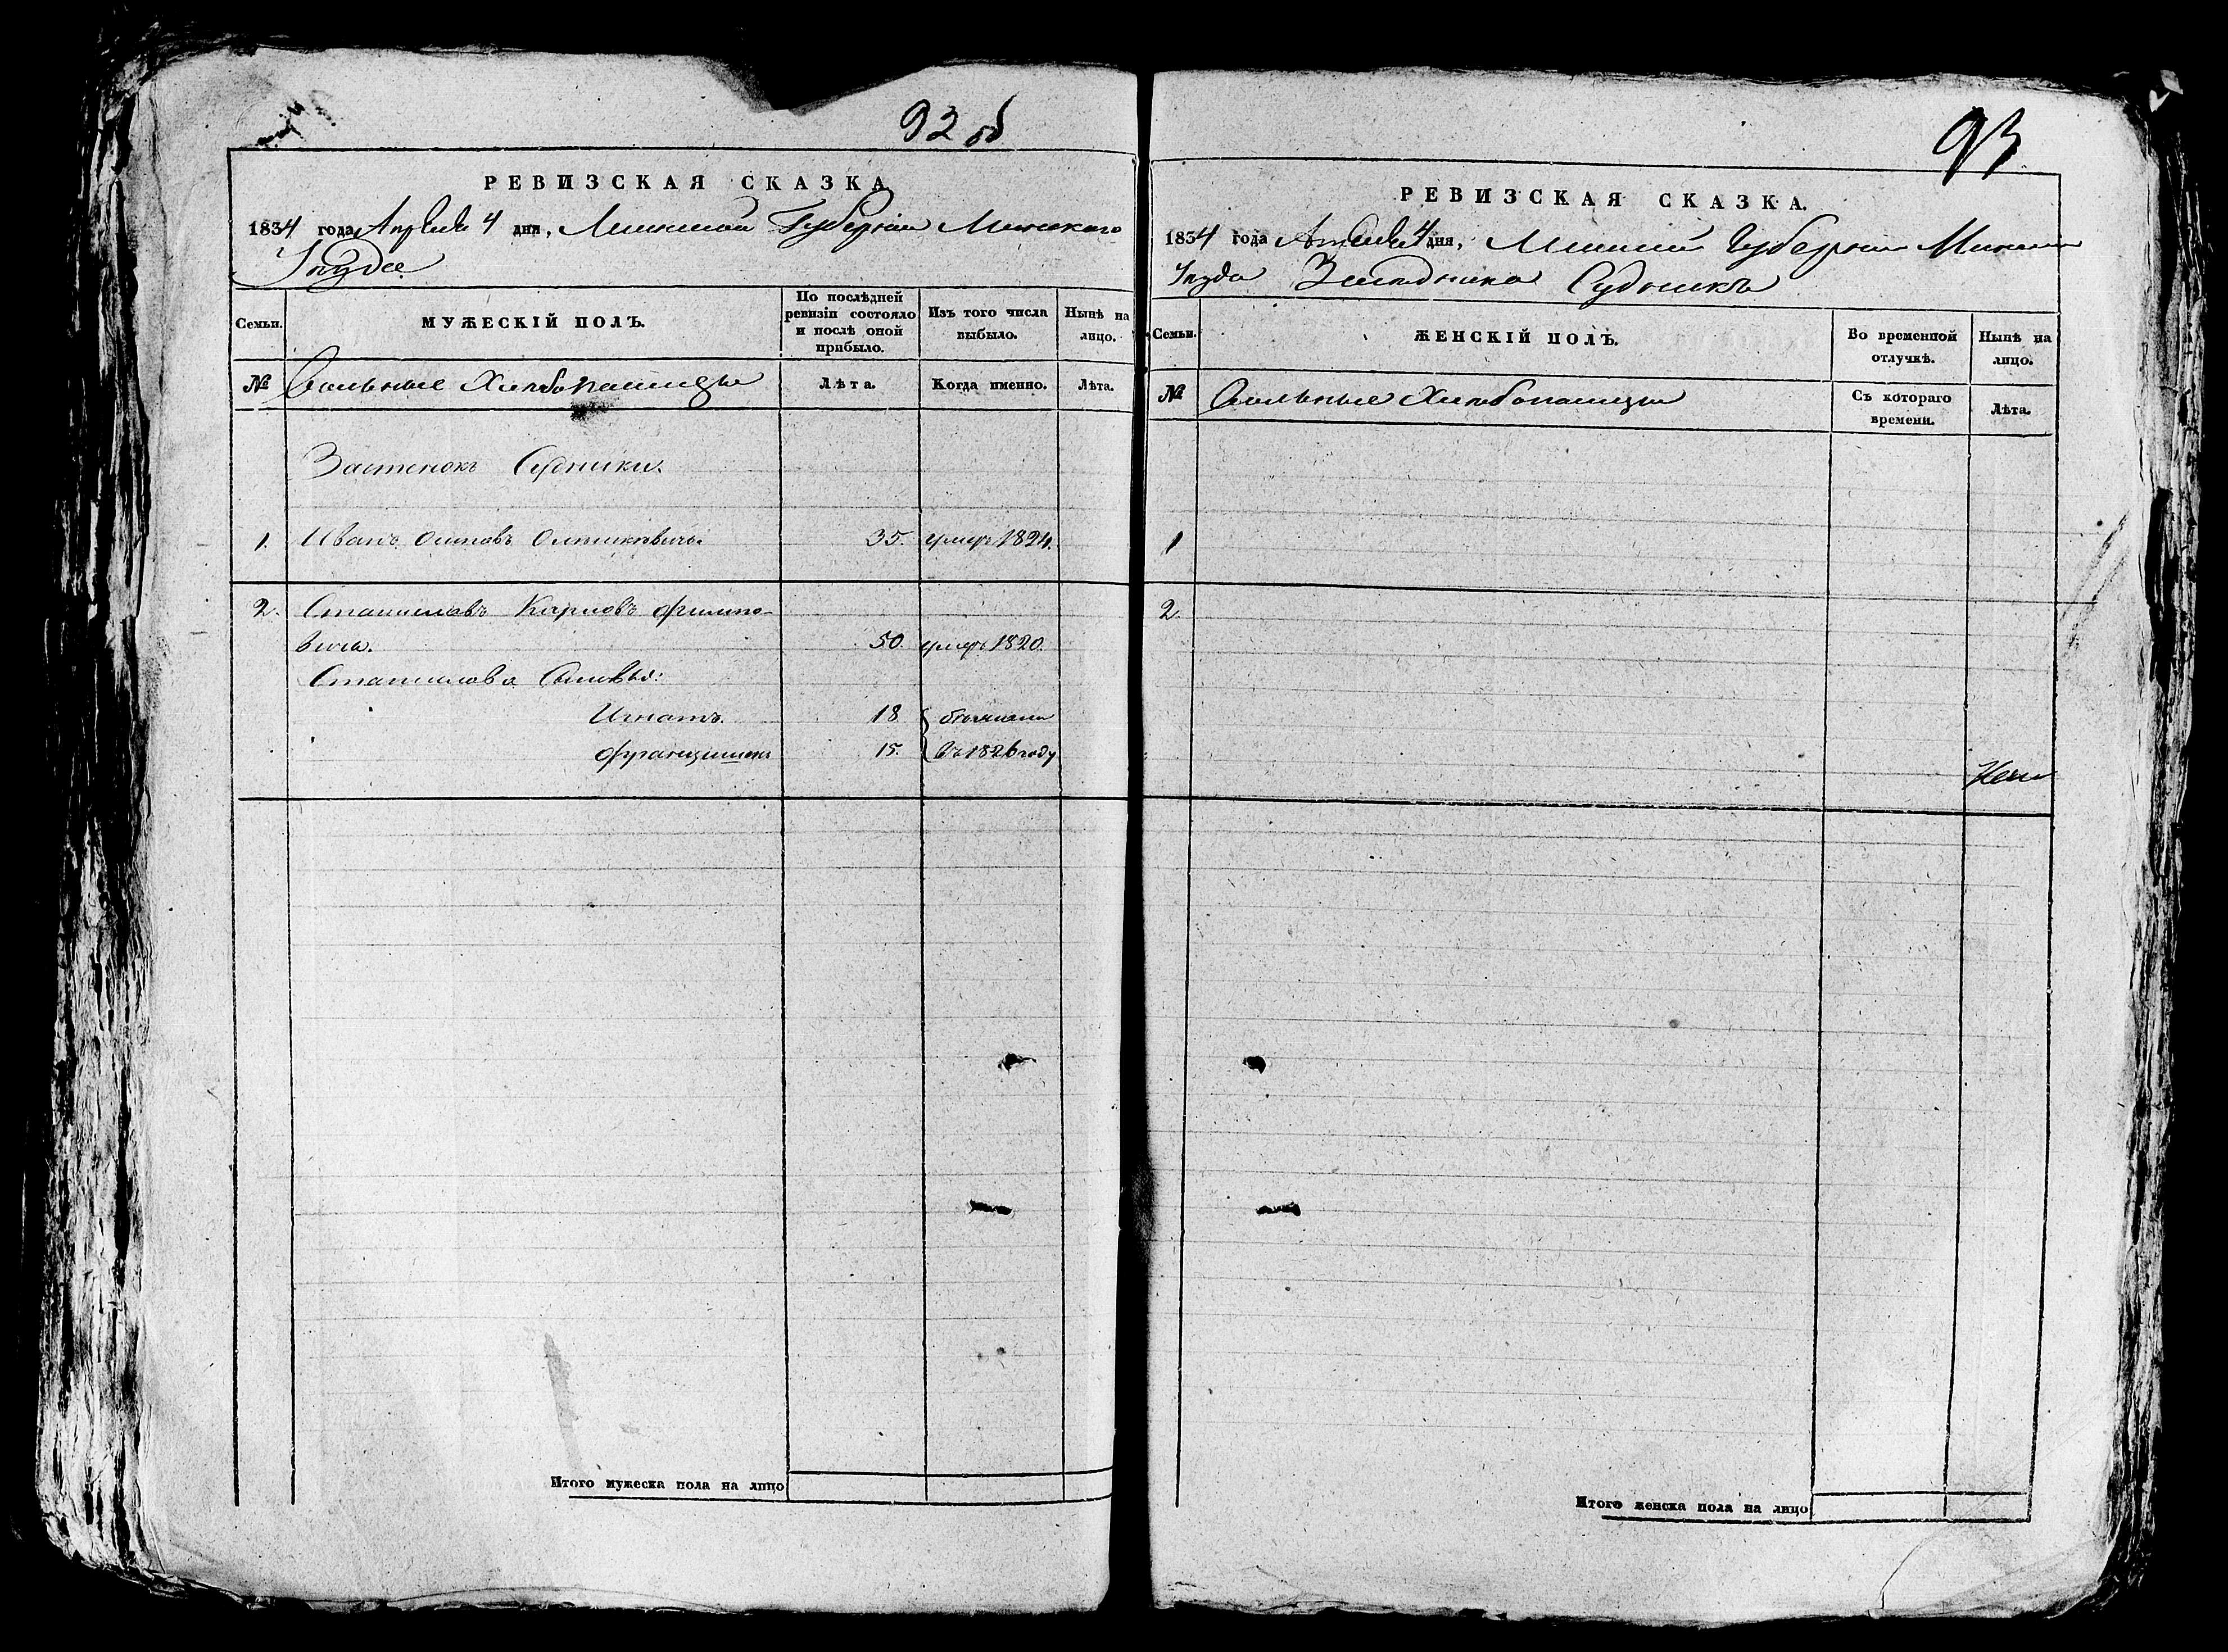 92 об
РЕВИЗСКАЯ СКАЗКА
1834 года Апреля 4 дня, Минской Губернии Минскаго
Уезда
Семьи. МУЖЕСКІЙ ПОЛЪ. По послѣдней ревизіи состояло и послѣ оной прибыло. Изъ того числа выбыло. Нынѣ на лицо.
№ Вольные Хлебопашцы Лѣта. Когда именно. Лѣта.
Застенокъ Судники.
1. Иванъ Осиповъ 35. умеръ 1824.
2. Станиславъ Карловъ Филипо-
вичъ. 50. умеръ 1820.
Станислава Сыновья:
Игнатъ 18
Францишекъ 15. въ 1826 году
Итого мужеска пола на лицо
93
РЕВИЗСКАЯ СКАЗКА.
1834 года Апреля 4 дня, Минской Губернии Минскаго
Уезда Застенка Судники
Семьи. ЖЕНСКІЙ ПОЛЪ. Во временной отлучкѣ. Нынѣ на лицо.
№ Вольные Хлебопашцы Съ котораго времени. Лѣта.
1
2.
Итого женска пола на лицо